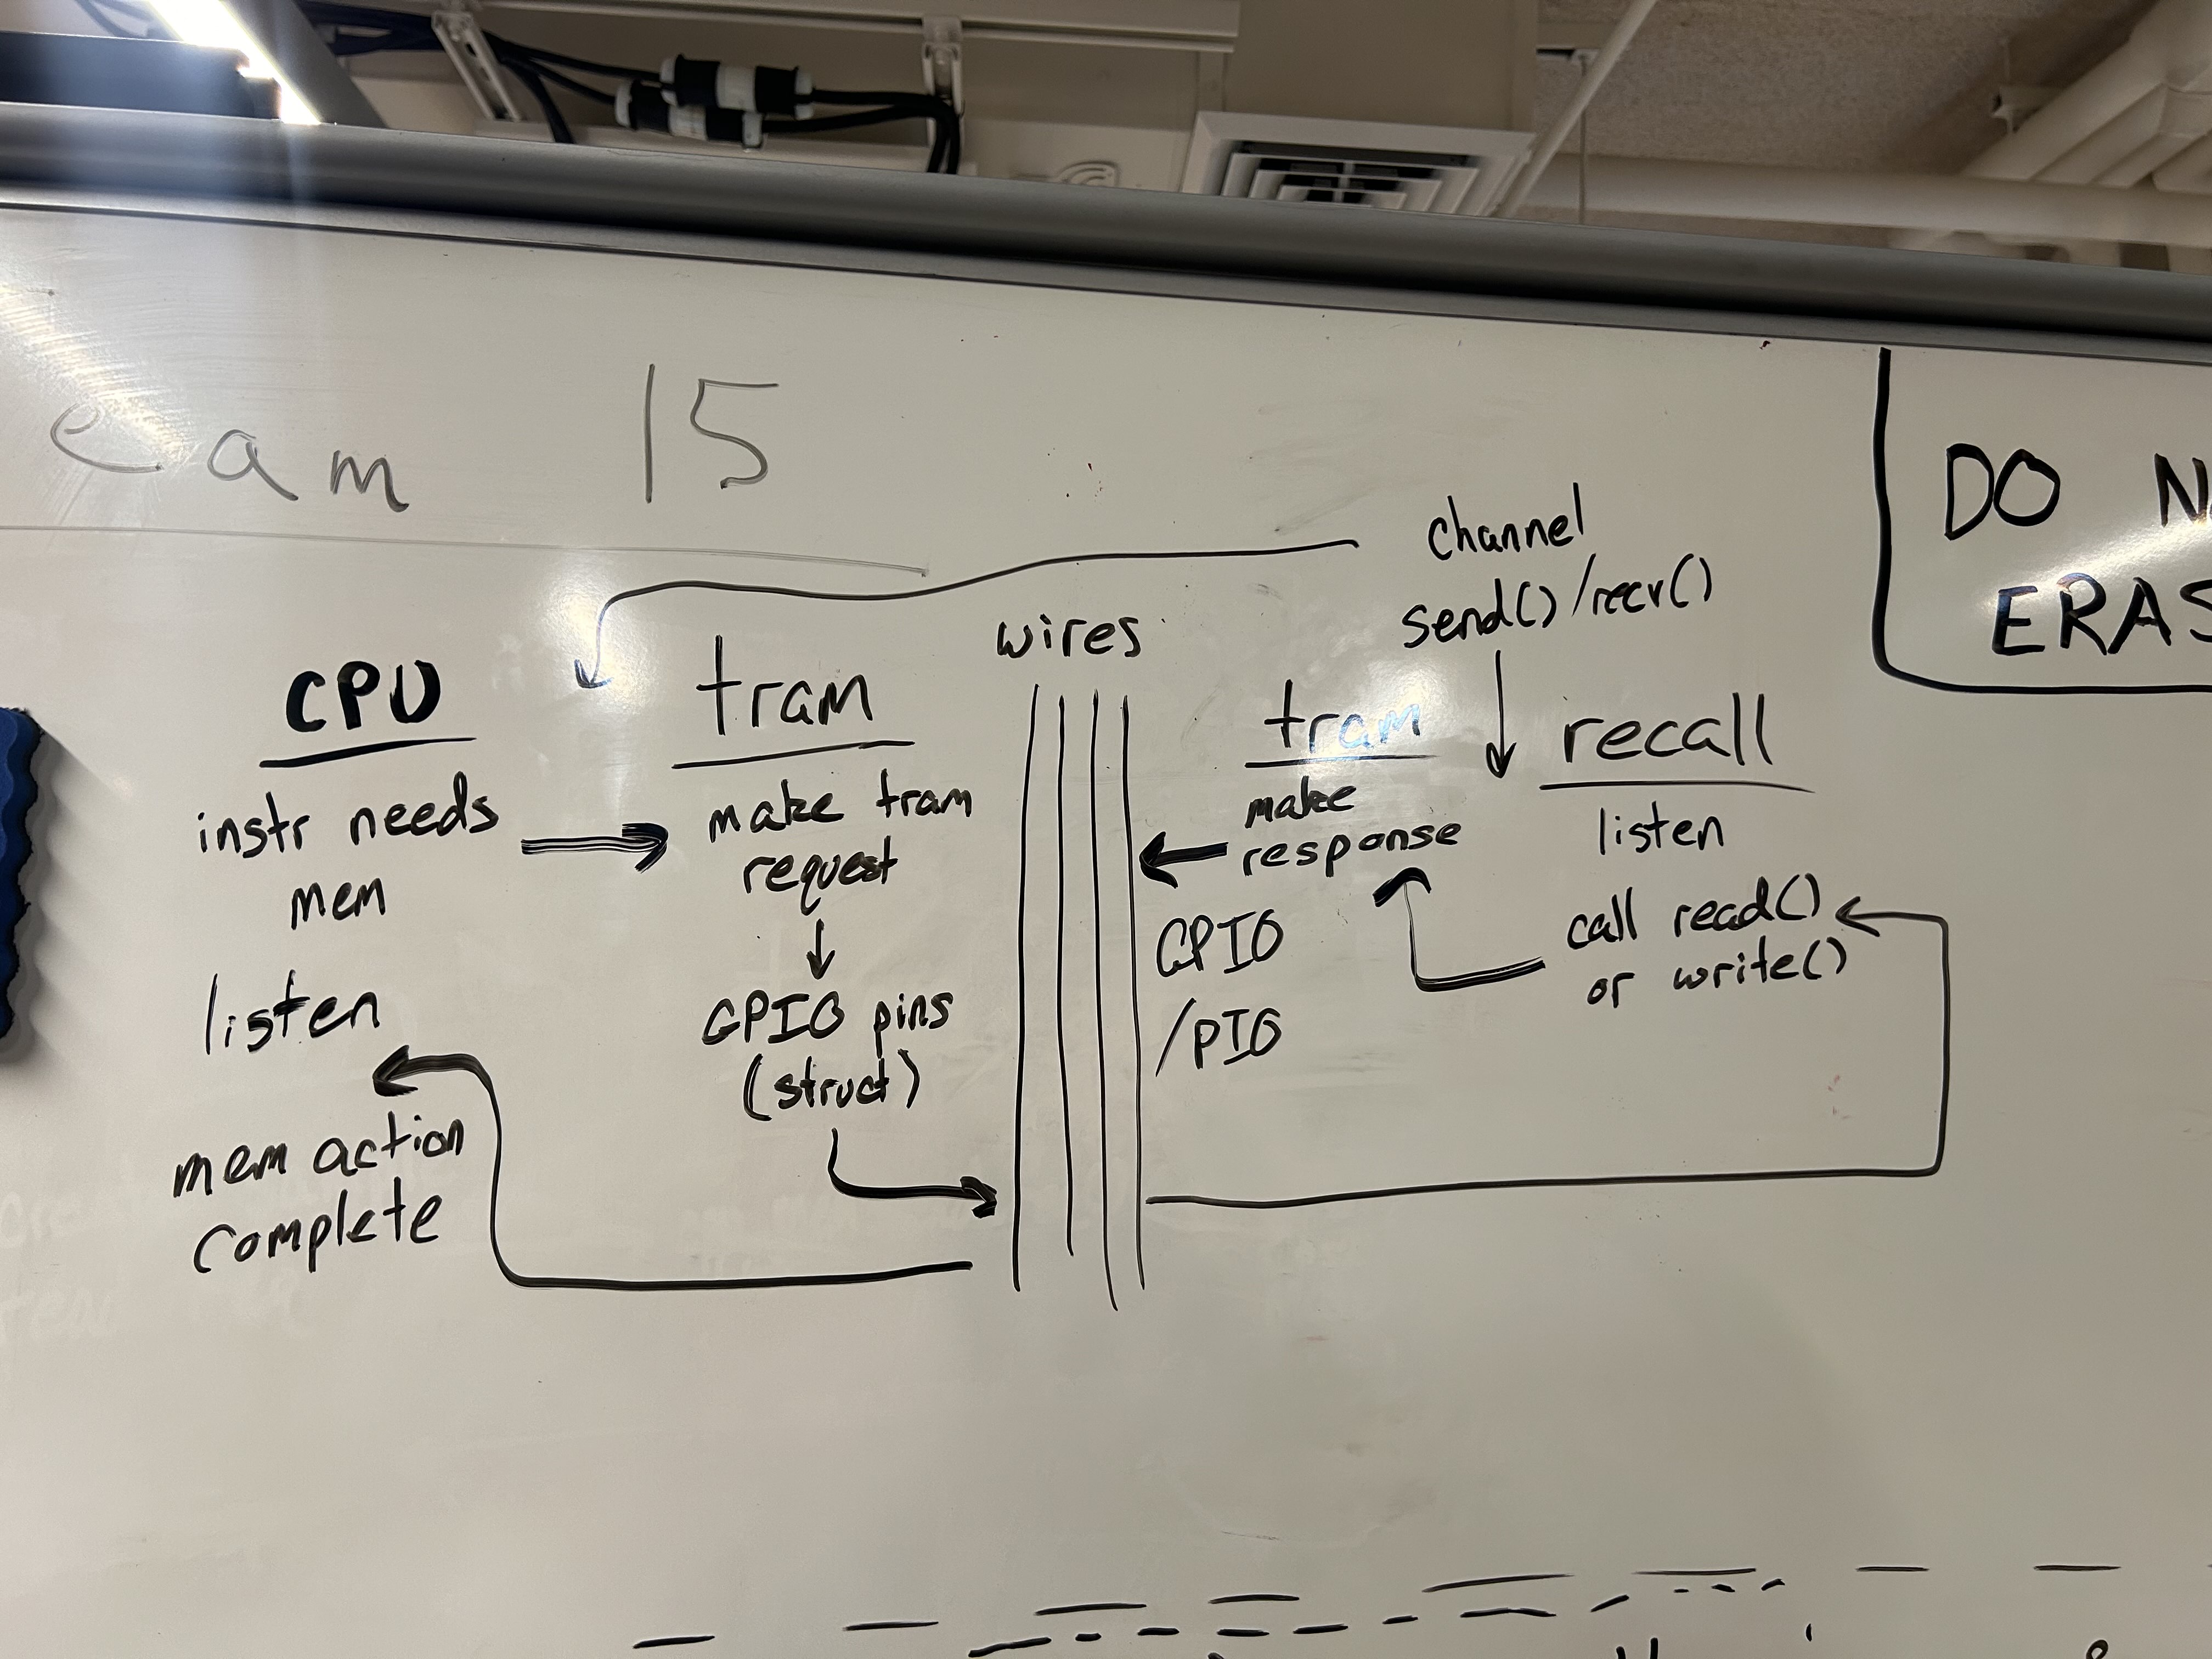 eam 15
DO N
ERAS
channel
send()/recv()
wires
CPU
instr needs
mem
listen
mem action
complete
tram
make tram
request
GPIO pins
(struct)
tram
make
response
GPIO
/PIO
recall
listen
call read()
or write()